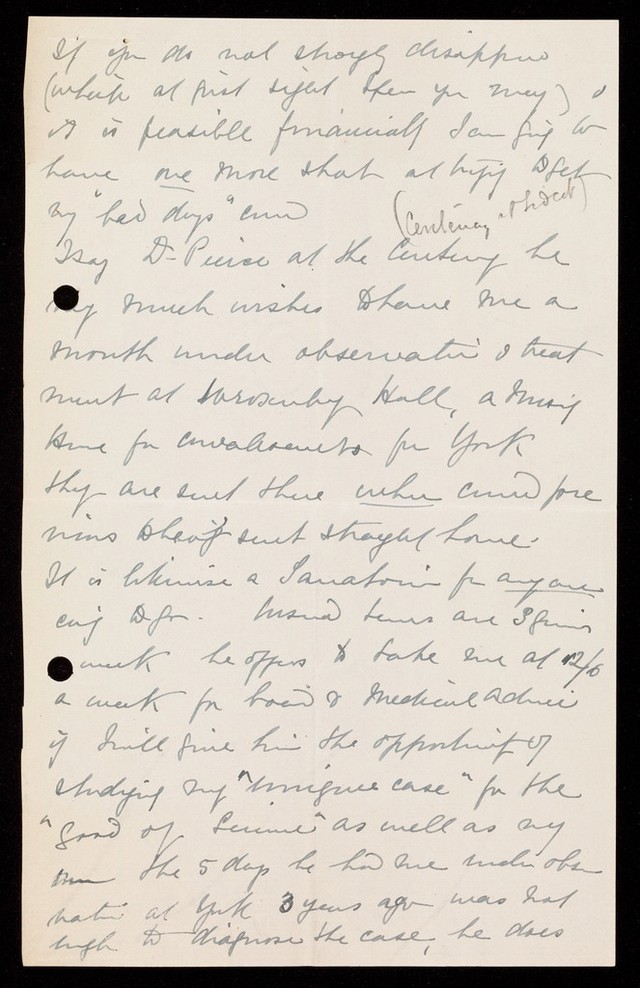 If you do not strongly disapprove
(which at first sight then you may) &
it is feasible financially I am going to
have one more shot at trying to get
my "bad days" cured
(Centenary
I say Dr Pierce at the Centenary he
very much wishes to have me a
month under observation & treat
ment at Hall, a
Home for convalescents for York
they are sent there when cured pre
vious to being sent straight home.
It is likewise a Sanatorium for anyone
to go. Usual terms are 3 guineas
a week he offers to take me at
a week for board & Medical Advice
if I will give him the opportunity of
studying my "unique case" for the
"good of Science" as well as my
own the 5 days he had me under obser
vation at York 3 years ago was not
enough to diagnose the case, he does